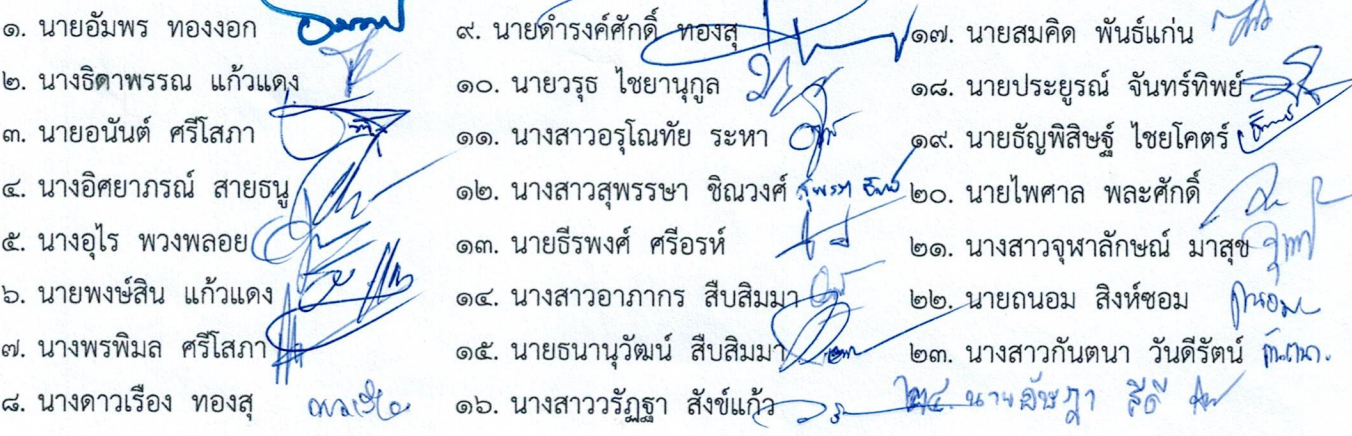 ๑. นายอัมพร ทองงอก
๒. นางธิดาพรรณ แก้วแดง
๓. นายอนันต์ ศรีโสภา
๔. นางอิศยาภรณ์ สายธนู
๕. นางอุไร พวงพลอย
๖. นายพงษ์สิน แก้วแดง
๗. นางพรพิมล ศรีโสภา
๘. นางดาวเรือง ทองสุ
๙. นายดำรงค์ศักดิ์ ทองสุ
๑๐. นายวรุธ ไชยานุกูล
๑๑. นางสาวอรุโณทัย ระหา
๑๒. นางสาวสุพรรษา ชิณวงศ์
๑๓. นายธีรพงศ์ ศรีอรห์
๑๔. นางสาวอาภากร สืบสิมมา
๑๕. นายธนานุวัฒน์ สืบสิมมา
๑๖. นางสาววรัฏฐา สังข์แก้ว
๑๗. นายสมคิด พันธ์แก่น
๑๘. นายประยูรณ์ จันทร์ทิพย์
๑๙. นายธัญพิสิษฐ์ ไชยโคตร์
๒๐. นายไพศาล พละศักดิ์
๒๑. นางสาวจุฬาลักษณ์ มาสุข
๒๒. นายถนอม สิงห์ซอม ถนอม
๒๓. นางสาวกันตนา วันดีรัตน์ กันตนา
๒๔. นาย